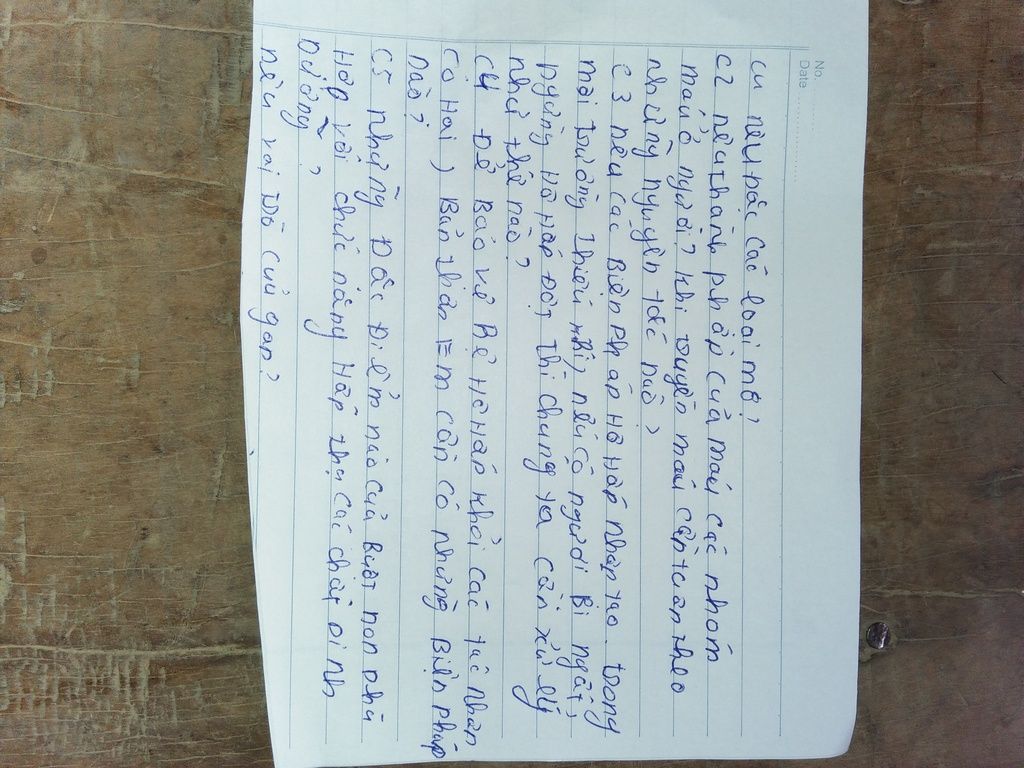 No.
Date
C1 nêu Đặc các loại mô?
C2 nêu thành phần của máu các nhóm
máu ở người? Khi truyền máu cần tuân theo
những nguyên tắc nào?
C3 nêu các Biện Pháp Hô Hấp Nhân tạo. trong
môi trường thiếu khí, nếu có người Bị ngất,
ngừng Hô Hấp Đột thì chúng ta cần xử lý
như thế nào?
C4 Để Bảo vệ Hệ Hô Hấp khỏi các tác nhân
có Hại, Bản thân Em cần có những Biện pháp
nào?
C5 những Đặc Điểm nào của Ruột non phù
Hợp với chức năng Hấp thụ các chất Dinh
Dưỡng?
nêu vai trò của gan?